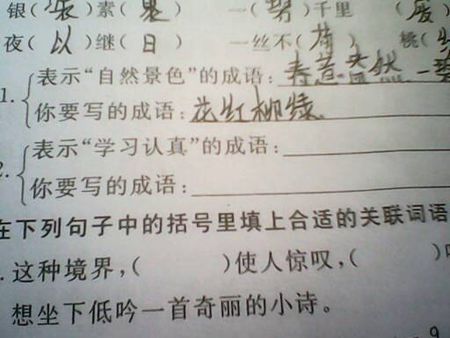 银(装)素(裹) 一(碧)千里 (
夜(以)继(日) 一丝不( ) 桃(
1. 表示“自然景色”的成语: 春意盎然 一碧
你要写的成语: 花红柳绿
2. 表示“学习认真”的成语:
你要写的成语:
在下列句子中的括号里填上合适的关联词语
.这种境界,( )使人惊叹,( )
想坐下低吟一首奇丽的小诗。
9